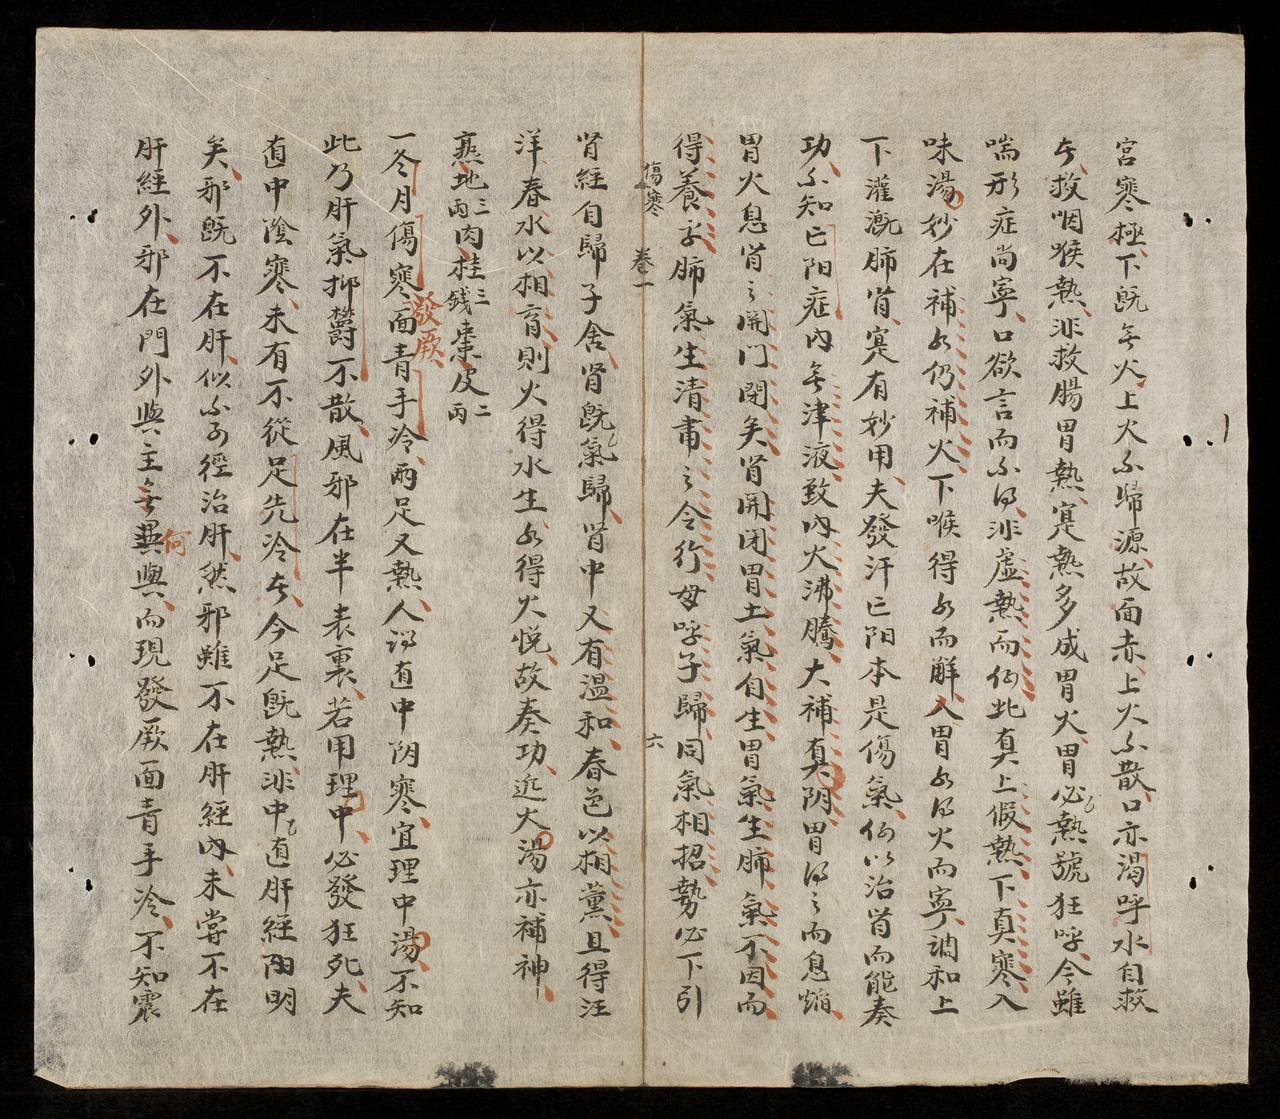 宮寒極下既无火上火不歸源故面赤上火不散口亦渴呼水自救
与救咽喉熱非救腸胃熱寔熱多成胃火胃必熱號狂呼今雖
喘形症尚寧口欲言而不得非虛熱而何此真上假熱下真寒入
味湯妙在補水仍補火下喉得水而解入胃水得火而寧調和上
下灌漑肺腎寔有妙用夫發汗亡阳本是傷氣何以治腎而能奏
功不知亡阳症內无津液致內火沸騰大補真阴胃得之而息焰
胃火息腎之開門閉矣腎開闭胃土氣自生胃氣生肺氣不因而
得養乎肺氣生清肅之令行母呼子歸同氣相招勢必下引
傷寒 卷一 六
腎經自歸子舍腎既氣歸腎中又有溫和春色以相薰且得汪
洋春水以相育則火得水生水得火悅故奏功迩大湯亦補神
熟地三两肉桂三錢棗皮二两
一冬月傷寒發厥面青手冷兩足又熱人謂直中阴寒宜理中湯不知
此乃肝氣抑鬱不散風邪在半表裏若用理中必發狂死夫
直中陰寒未有不從足先冷与今足既熱非中直肝經阳明
矣邪既不在肝似不可徑治肝然邪雖不在肝經內未嘗不在
肝經外邪在門外與主无異何與而現發厥面青手冷不知震